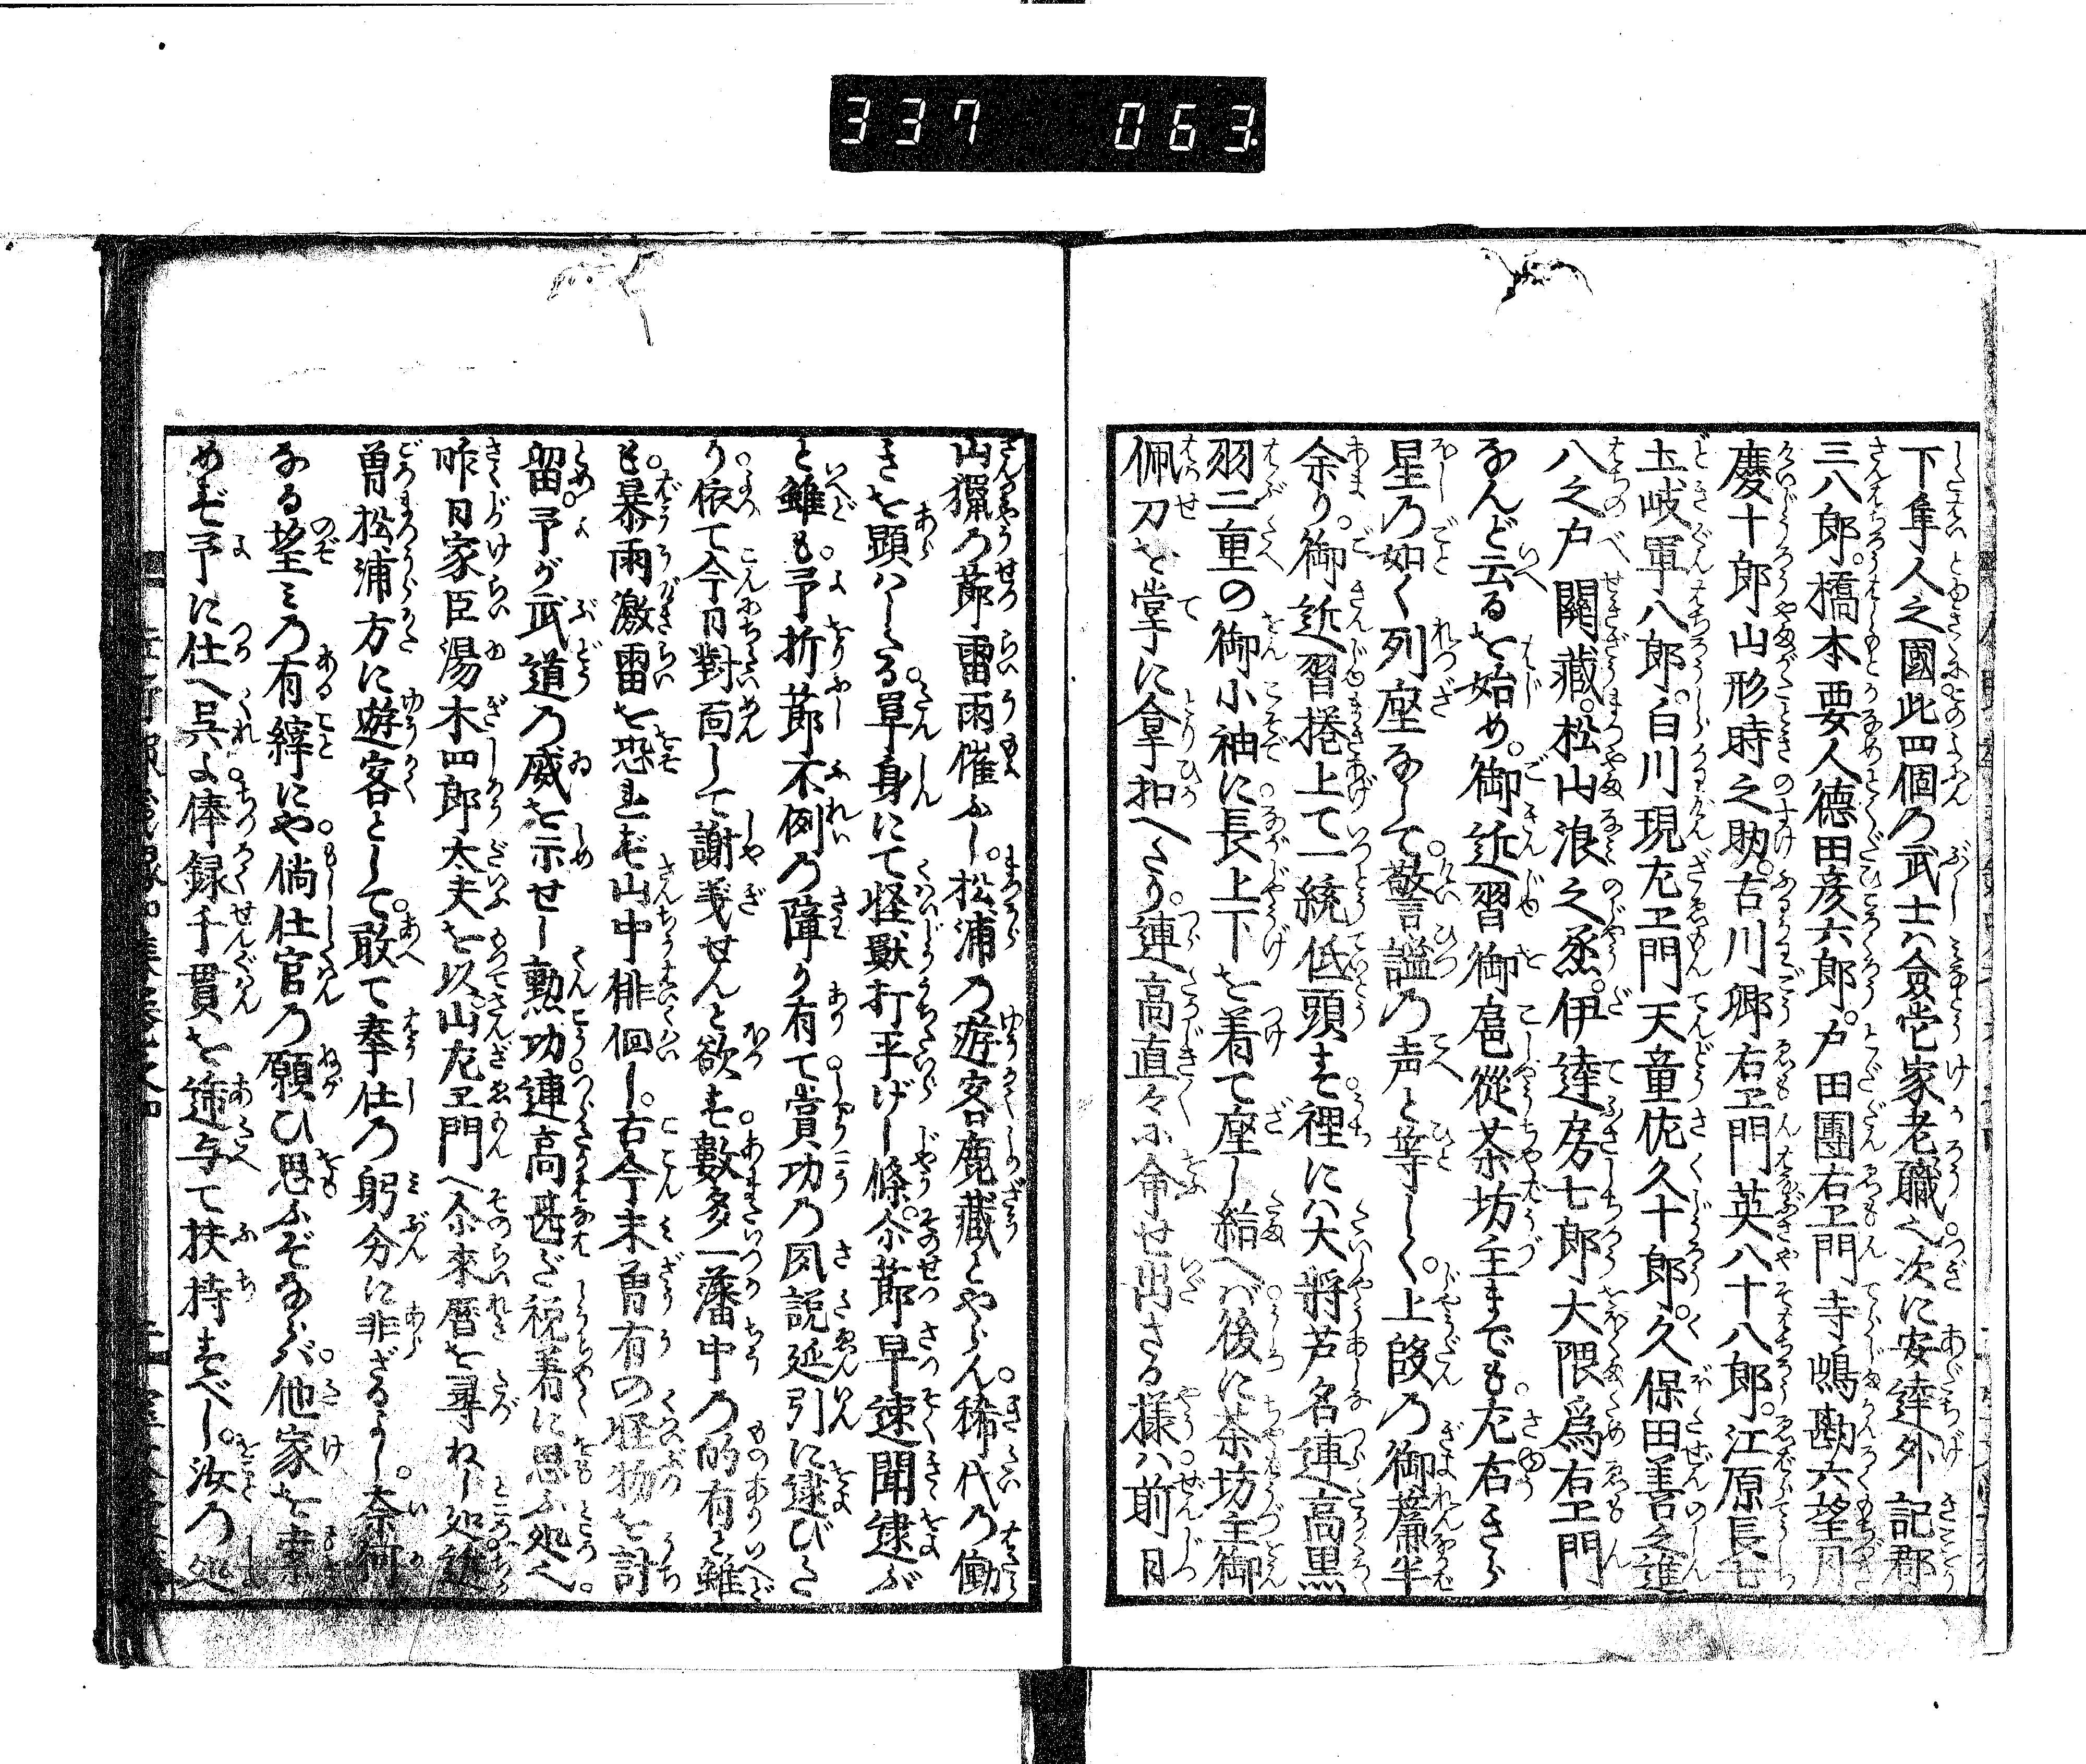 337 063
下隼人之國此四個の武士ハ僉党家老職之次に安達外記郡
三八郎。橋本要人德田彦六郎。戸田團右エ門寺嶋勘六望月
慶十郎山形時之助。古川郷右エ門英八十八郎。江原長七
土岐軍八郎。白川現左エ門天童佐久十郎。久保田善之進
八之戸關藏。松山浪之烝。伊達房七郎大隈爲右エ門
なんど云るを始め。御近習御扈從茶坊主までも。左右きら
星の如く列座なして。警謐の声と等しく。上段の御簾半
余り。御近習捲上て一統低頭す。裡にハ大將芦名連高黒
羽二重の御小袖に。長上下を着て座し給へバ。後に茶坊主御
佩刀を掌に拿扣へたり。連高直々に命せ出さる様ハ。前日
山獵の節雷雨催ふし。松浦の遊客鹿藏とやらん。稀代の働
きを顕ハしたる。單身にて怪獸打平げし條。尒節早速聞逮ぶ
と雖も。予折節不例の障り有て。賞功の夙説延引に逮びた
り。依て今日對面して謝義せんと欲す。數多一藩中の的有と雖
も。暴雨激雷を恐れず山中徘徊し。古今未曽有の怪物を討
留。予が武道の威を示せし勲功。連高甚だ祝着に思ふ処へ。
昨日家臣湯木四郎太夫を以。山左エ門へ尒來曆を尋ねし処。近
曽松浦方に遊客として。敢て奉仕の躬分に非ざるよし。奈何
なる望ミの有縡にや。倘仕官の願ひ思ふぞならバ。他家を索
めず予に仕へ呉よ。俸録千貫を遣与て扶持すべし。汝の処